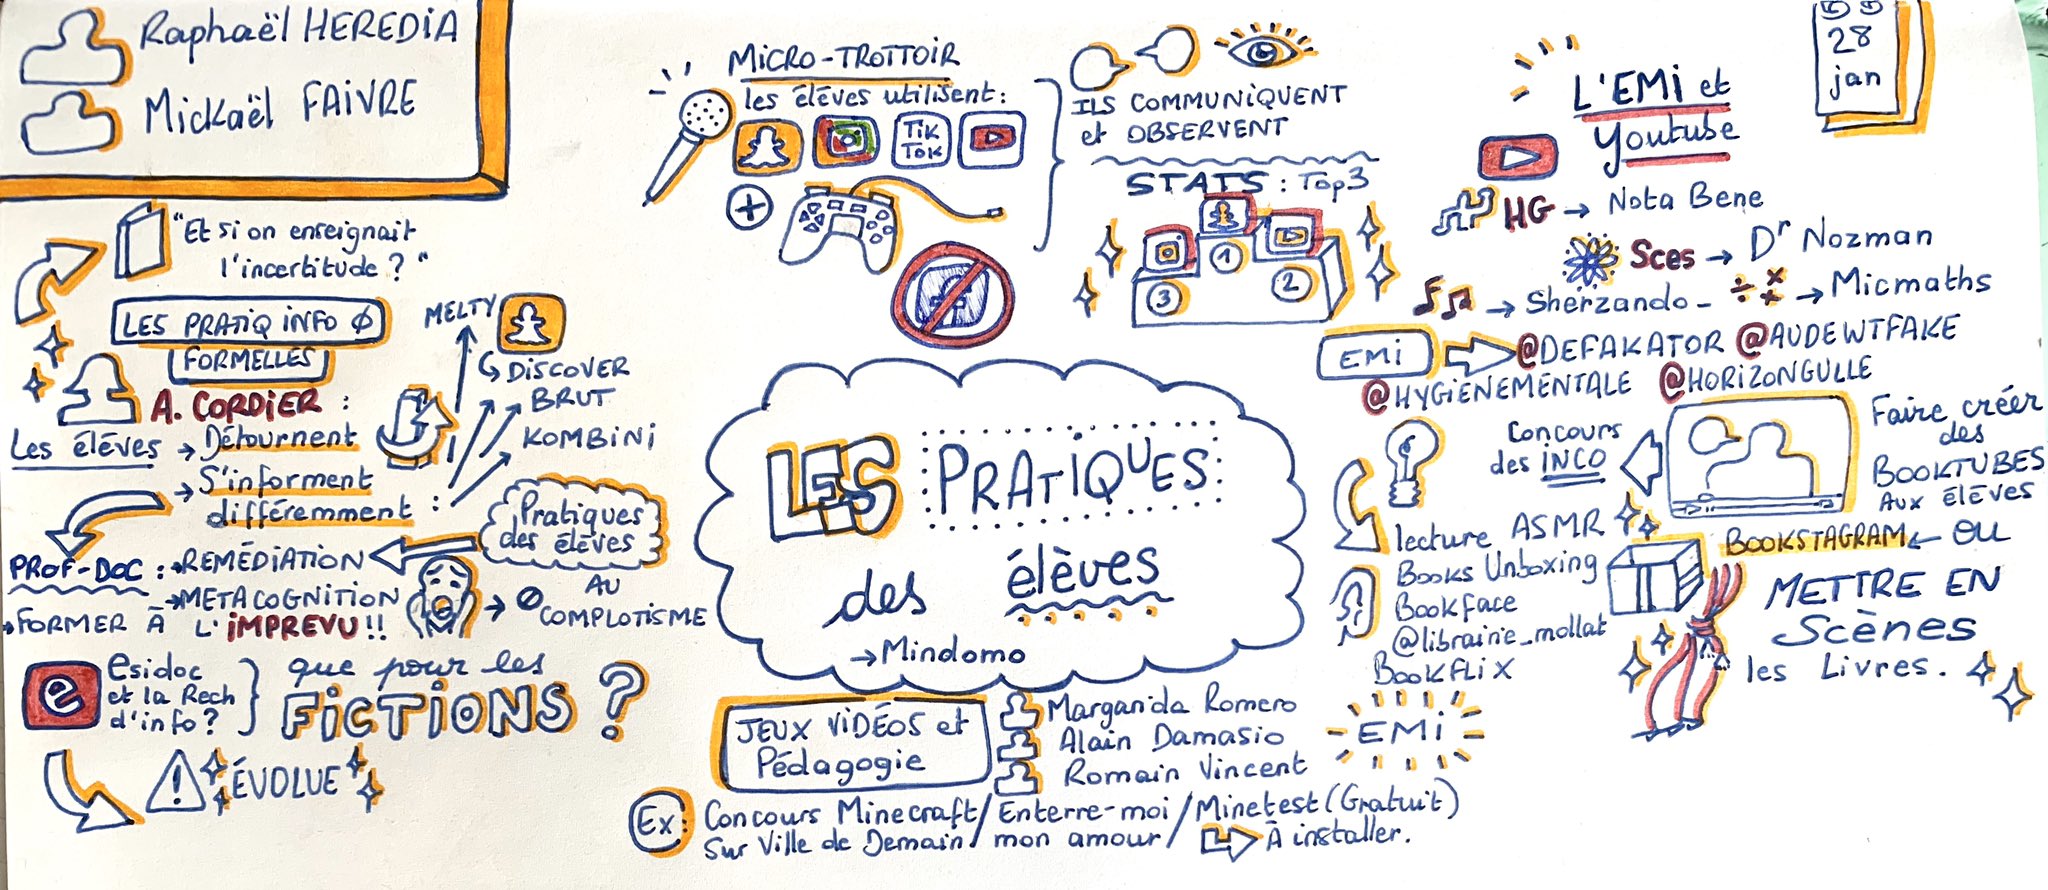 Raphaël HEREDIA
Mickaël FAIVRE
"Et si on enseignait
l'incertitude ?"
LES PRATIQ INFO Ø
FORMELLES
A. CORDIER :
Les élèves → Détournent
→ S'informent
différemment :
MELTY
DISCOVER
BRUT
KOMBINI
Pratiques
des élèves
PROF-DOC : → REMÉDIATION
→ METACOGNITION
→ FORMER À L'IMPREVU !!
→ Ø AU
COMPLOTISME
e
Esidoc
et la Rech
d'info ?
que pour les
FICTIONS ?
! ÉVOLUE
MICRO-TROTTOIR
les élèves utilisent :
TIK
TOK
+
f
ILS COMMUNIQUENT
et OBSERVENT
STATS : Top 3
1
2
3
LES PRATIQUES
des élèves
→ Mindomo
JEUX VIDÉOS et
Pédagogie
Margarida Romero
Alain Damasio
Romain Vincent
EMI
Ex : Concours Minecraft / Enterre-moi / Minetest (Gratuit)
Sur Ville de Demain / mon amour / À installer.
28
jan
L'EMI et
Youtube
HG → Nota Bene
Sces → Dr Nozman
→ Sherzando - ÷ × + × → Micmaths
EMI
@DEFAKATOR @AUDEWTFAKE
@HYGIENEMENTALE @HORIZONGULLE
Concours
des INCO
Faire créer
des
BOOKTUBES
AUX élèves
lecture ASMR
Books Unboxing
Bookface
@librairie_mollat
BOOKFLIX
BOOKSTAGRAM ← OU
METTRE EN
Scènes
les Livres.